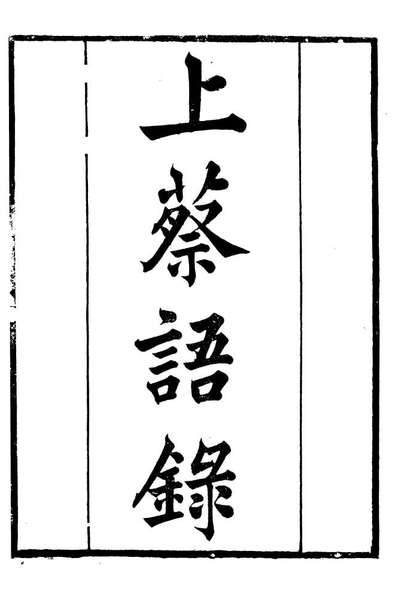 上蔡語錄